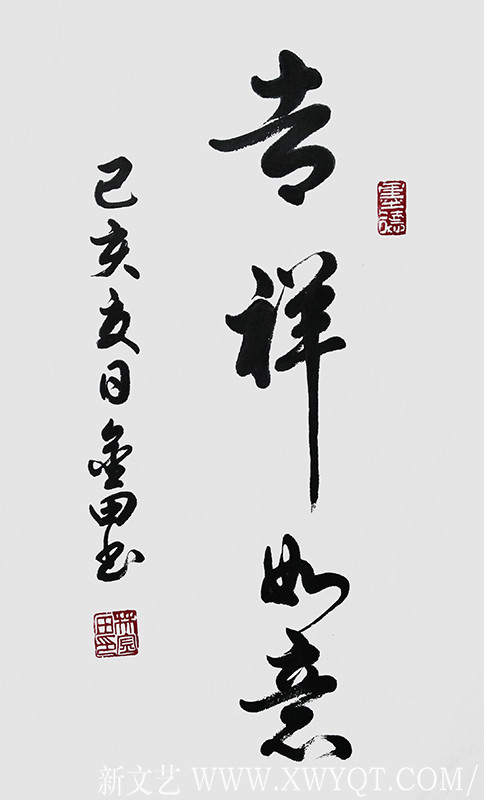 吉祥如意
己亥夏日金田书
林金田印
新文艺 WWW.XWYQT.COM/